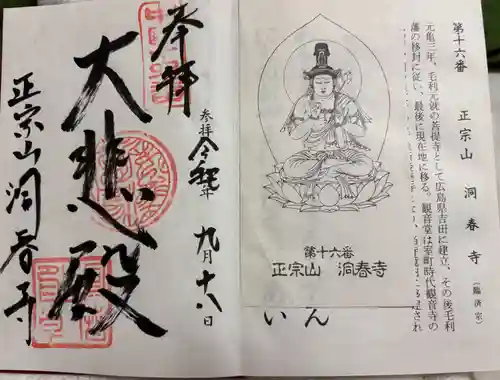 第十六番　正宗山　洞春寺（臨済宗）
元亀三年、毛利元就の菩提寺として広島県吉田に建立、その後毛利
藩の移封に従い、最後に現在地に移る。観音堂は室町時代観音寺の
第十六番
正宗山　洞春寺
いん
奉拝
参拝 令和 年 九月十八日
大悲殿
正宗山洞春寺